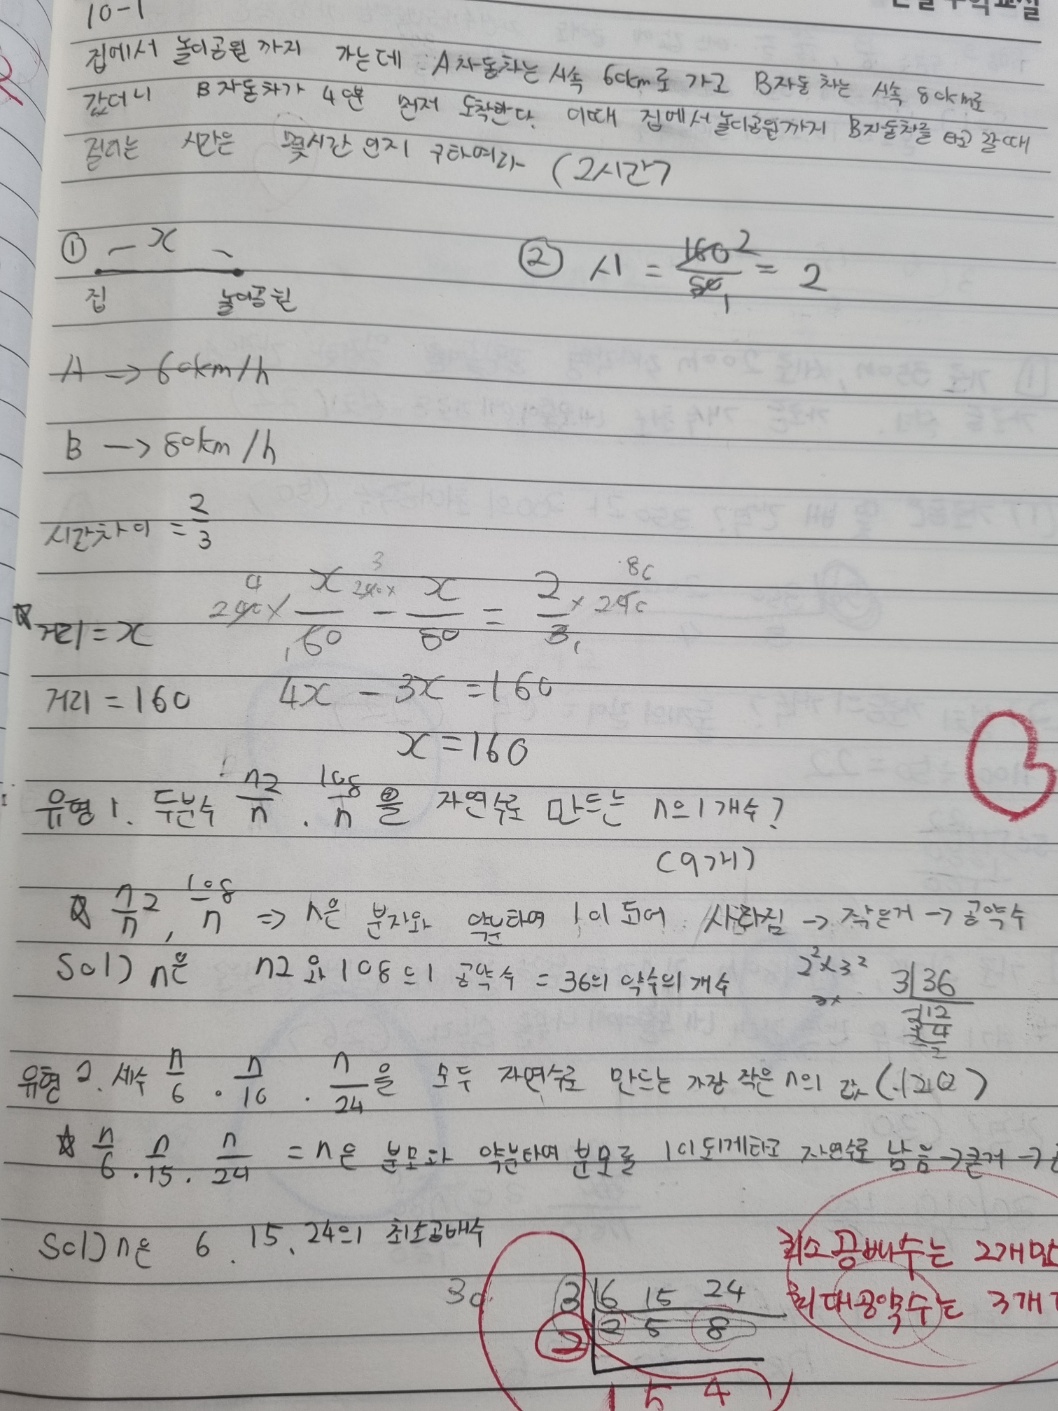 10-1
집에서 놀이공원 까지 가는데 A자동차는 시속 60km로 가고 B자동차는 시속 80km로
갔더니 B자동차가 40분 먼저 도착한다. 이때 집에서 놀이공원까지 B자동차를 타고 갈때
걸리는 시간은 몇시간 인지 구하여라 (2시간)
① x
집 놀이공원
② 시 = 160 2 / 80 1 = 2
A → 60km/h
B → 80km/h
시간차이 = 2/3
거리 = x 4 240× x/60 3 240× - x/80 = 2/3 × 240 80
거리 = 160 4x - 3x = 160
x = 160
유형 1. 두분수 72/n . 108/n 을 자연수로 만드는 n의 개수?
(9개)
☆ 72/n , 108/n ⇒ n은 분자와 약분하여 1이 되어 사라짐 → 작은거 → 공약수
Sol) n은 72와 108의 공약수 = 36의 약수의 개수 2²×3² 3 36
12
4
2
유형 2. 세수 n/6 . n/10 . n/24 을 모두 자연수로 만드는 가장 작은 n의 값 (120)
☆ n/6 . n/15 . n/24 = n은 분모와 약분하여 분모를 1이되게하고 자연수로 남음 → 큰거 →
Sol) n은 6 . 15 . 24의 최소공배수
최소공배수는 2개만
30 3 6 15 24
최대공약수는 3개
2 2 5 8
1 5 4